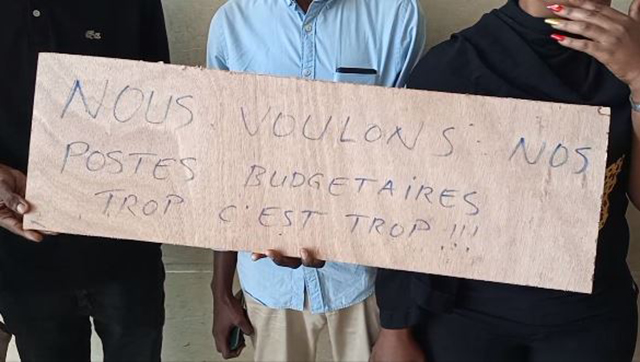 NOUS VOULONS NOS
POSTES BUDGETAIRES
TROP C'EST TROP !!!